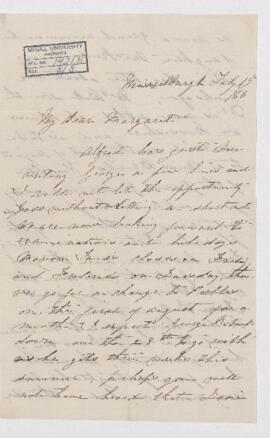 McGILL UNIVERSITY
ARCHIVES
ACC. NO.
REF.
Musselburgh July 15
/66
My dear Margaret
Alfred has just been
writing George a few lines and
I would not let the opportunity
pass without adding a short note
are now looking forward to
examinations and holidays
Marion Jane's closes on Friday
and Frederic's on Tuesday then
we go for a change to Peebles
on the first of August for a
month I expect George
down on the to go with
us he gets three weeks this
summer perhaps you will
not have heard that